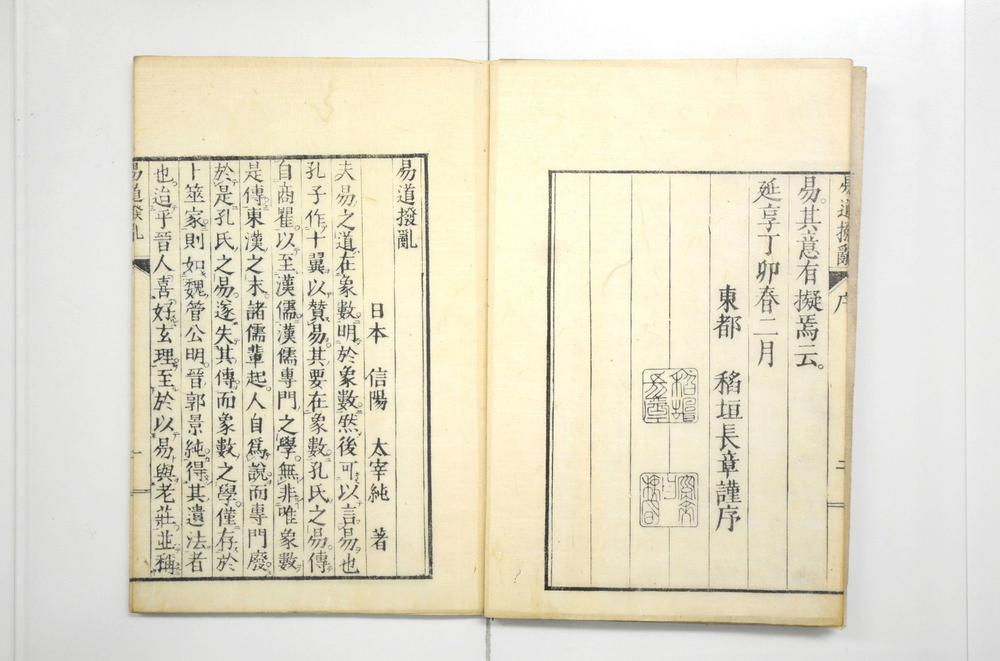 易道撥亂 序
易。其意有擬焉云。
延享丁卯春二月
東都 稻垣長章謹序
易道撥亂
日本 信陽 太宰純 著
夫易之道在象數。明於象數。然後可以言易也
孔子作十翼以贊易。其要在象數。孔氏之易。傳
自商瞿。以至漢儒。漢儒專門之學。無非唯象數
是傳。東漢之末。諸儒輩起。人自爲說。而專門廢。
於是孔氏之易。遂失其傳。而象數之學。僅存於
卜筮家。則如魏管公明。晉郭景純。得其遺法者
也。迨乎晉人喜好玄理。至於以易與老莊並稱
易道撥亂